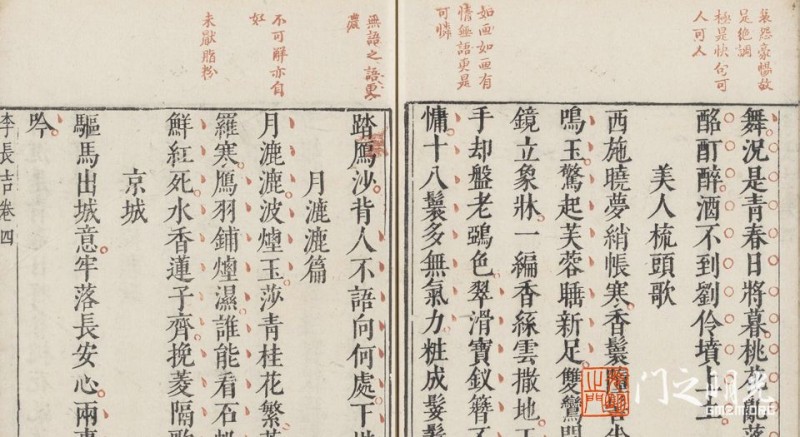 哀怨豪暢故
是絕調
極是快句可
人可人
舞況是青春日將暮桃花亂落
酩酊醉酒不到劉伶墳上土
美人梳頭歌
西施曉夢綃帳寒香鬟墮髻半
鳴玉驚起芙蓉睡新足雙鸞開
鏡立象牀一編香絲雲撒地玉
如画如画有
情無語更是
可憐
手却盤老鵶色翠滑寶釵簪不
慵十八鬟多無氣力粧成髮
無語之語更
濃
踏鴈沙背人不語向何處下
月漉漉篇
不可解亦自
好
月漉漉波煙玉莎青桂花繁芙
未厭脂粉
羅寒鴈羽鋪煙濕誰能看石
鮮紅死水香蓮子齊挽菱隔歌
京城
驅馬出城意牢落長安心兩事
吟
李長吉卷四
门之明光
GM2M.ORG